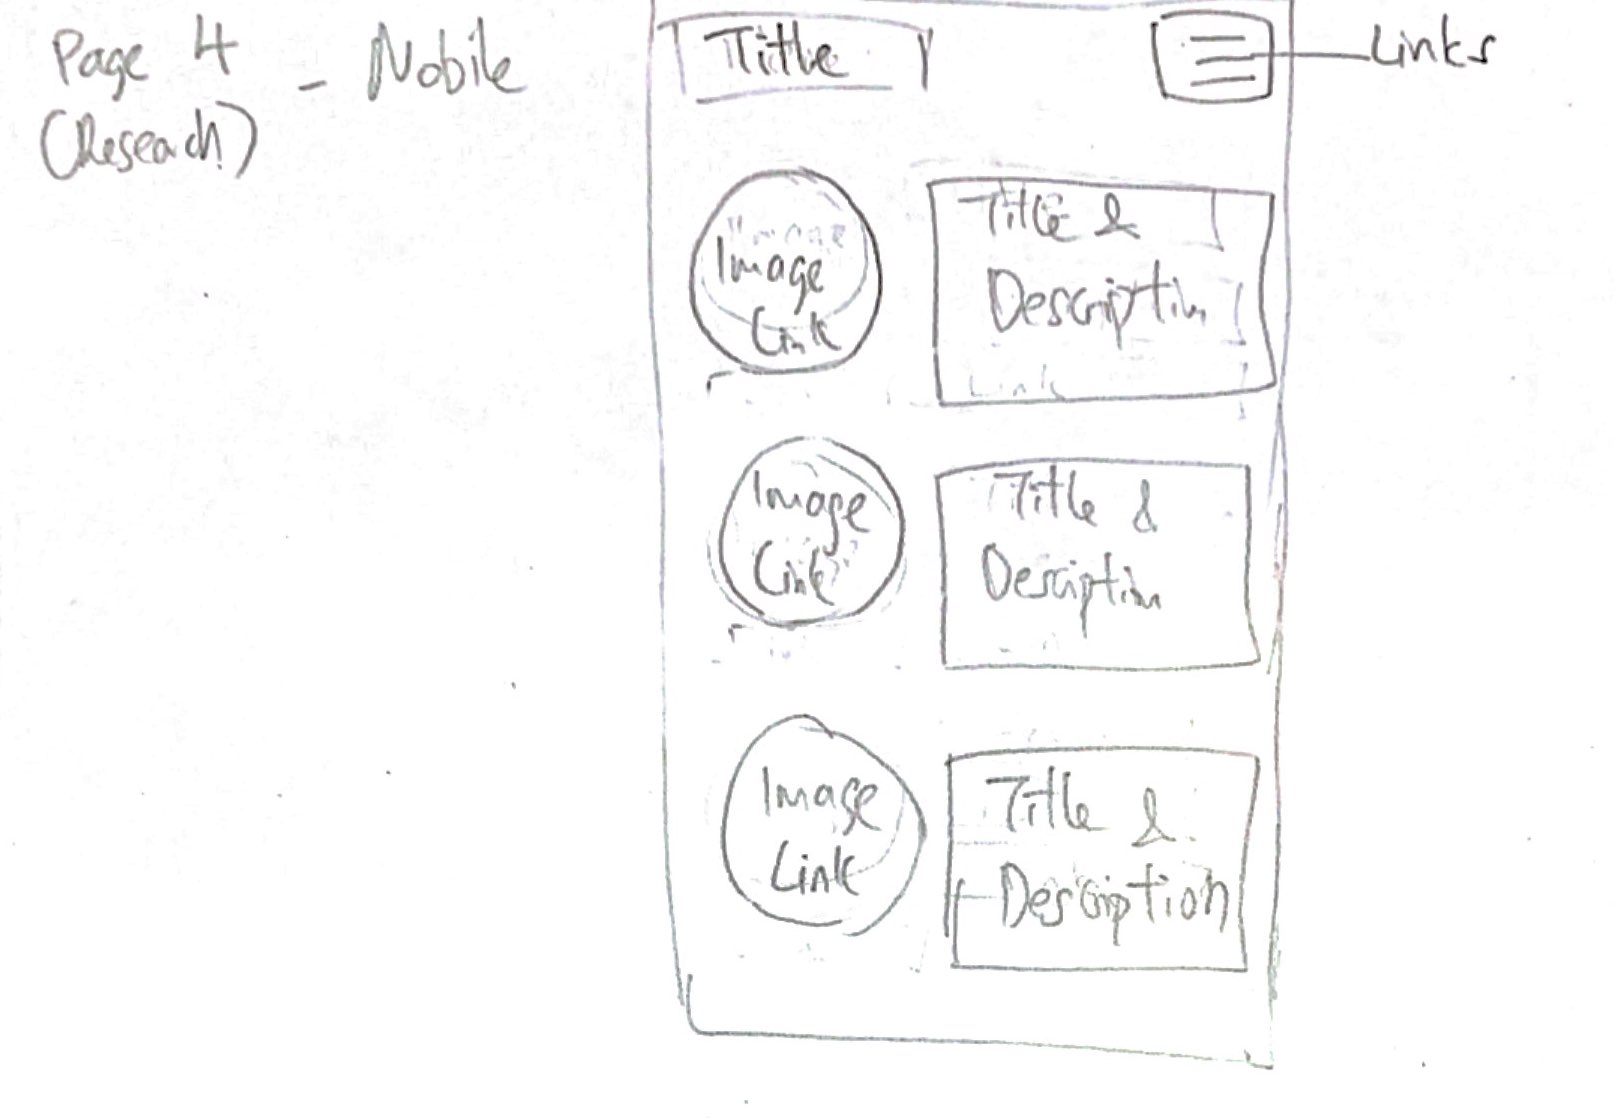 Page 4
(Reseach)
- Mobile
Title
Links
Image
Link
Title &
Description
Link
Image
Link
Title &
Description
Image
Link
Title &
Description